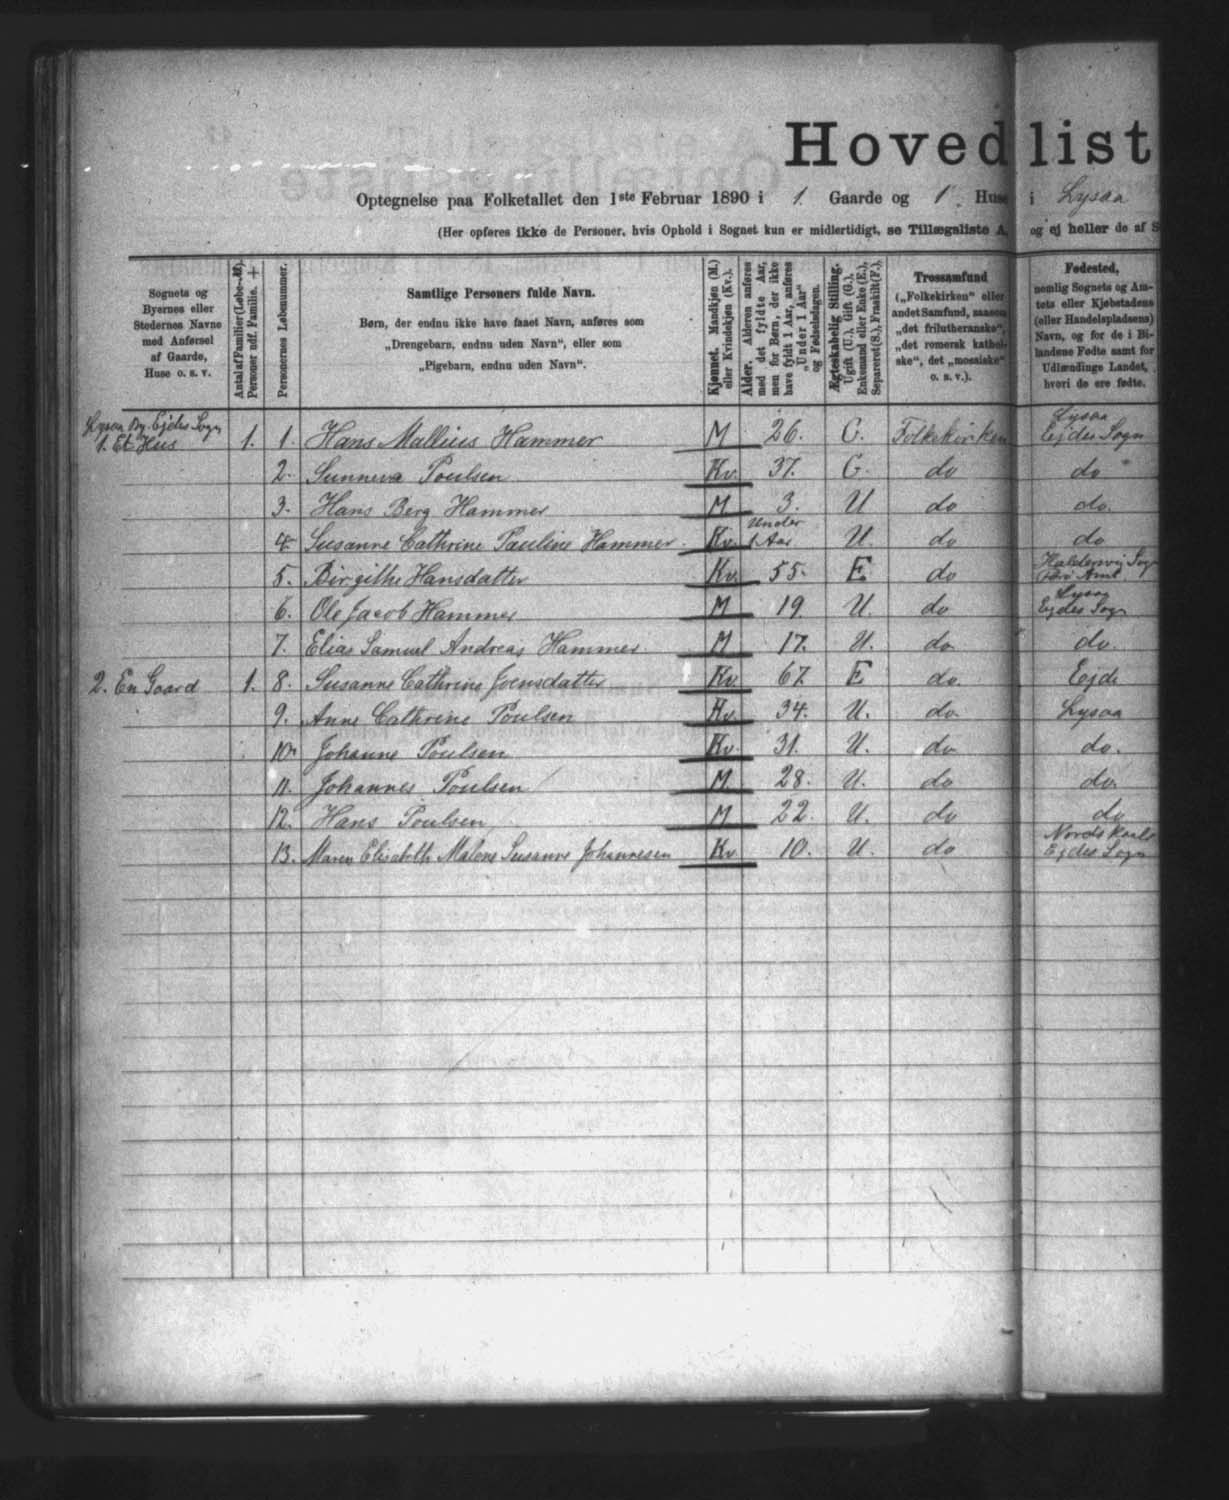 Hovedlist
Optegnelse paa Folketallet den 1ste Februar 1890 i 1. Gaarde og 1. Huse i Lysaa
(Her opføres ikke de Personer, hvis Ophold i Sognet kun er midlertidigt, se Tillægsliste A, og ej heller de af S
Sognets og
Byernes eller
Stedernes Navne
med Anførsel
af Gaarde,
Huse o. s. v.
Antal af Familier (Løbe-№).
Personer udf. Familie. +
Personernes Løbenummer.
Samtlige Personers fulde Navn.
Børn, der endnu ikke have faaet Navn, anføres som
„Drengebarn, endnu uden Navn", eller som
„Pigebarn, endnu uden Navn".
Kjønnet. Mandkjøn (M.)
eller Kvindekjøn (Kv.).
Alder. Alderen anføres
med det fyldte Aar,
men for Børn, der ikke
have fyldt 1 Aar, anføres
„Under 1 Aar"
og Fødselsdagen.
Ægteskabelig Stilling.
Ugift (U.), Gift (G.),
Enkemand eller Enke (E.),
Separeret (S.), Fraskilt (F.).
Trossamfund
(„Folkekirken" eller
andet Samfund, saasom
„det frilutheranske",
„det romersk kathol-
ske", det „mosaiske"
o. s. v.).
Fødested,
nemlig Sognets og Am-
tets eller Kjøbstadens
(eller Handelspladsens)
Navn, og for de i Bi-
landene Fødte samt for
Udlændinge Landet,
hvori de ere fødte.
Lysaa By. Ejdes Sogn
1. Et Hus 1. 1. Hans Mallius Hammer M 26. G. Folkekirken Lysaa Ejdes Sogn
2. Sunneva Poulsen Kv. 37. G. do do
3. Hans Berg Hammer M 3. U do do.
4. Susanne Cathrine Pauline Hammer Kv. Under 1 Aar U. do do
5. Birgithe Hansdatter Kv. 55. E do Haldersvig Sogn Amt
6. Ole Jacob Hammer M 19. U. do Lysaa Ejdes Sogn
7. Elias Samuel Andreas Hammer M 17. U. do do.
2. En Gaard 1. 8. Susanne Cathrine Joensdatter Kv 67. E do. Ejde
9. Anne Cathrine Poulsen Kv. 34. U. do. Lysaa
10. Johanne Poulsen Kv. 31. U. do do.
11. Johannes Poulsen M. 28. U. do do.
12. Hans Poulsen M 22. U. do do
13. Maren Elisabeth Malene Susanne Johannesen Kv 10. U. do Nordskaale Ejdes Sogn